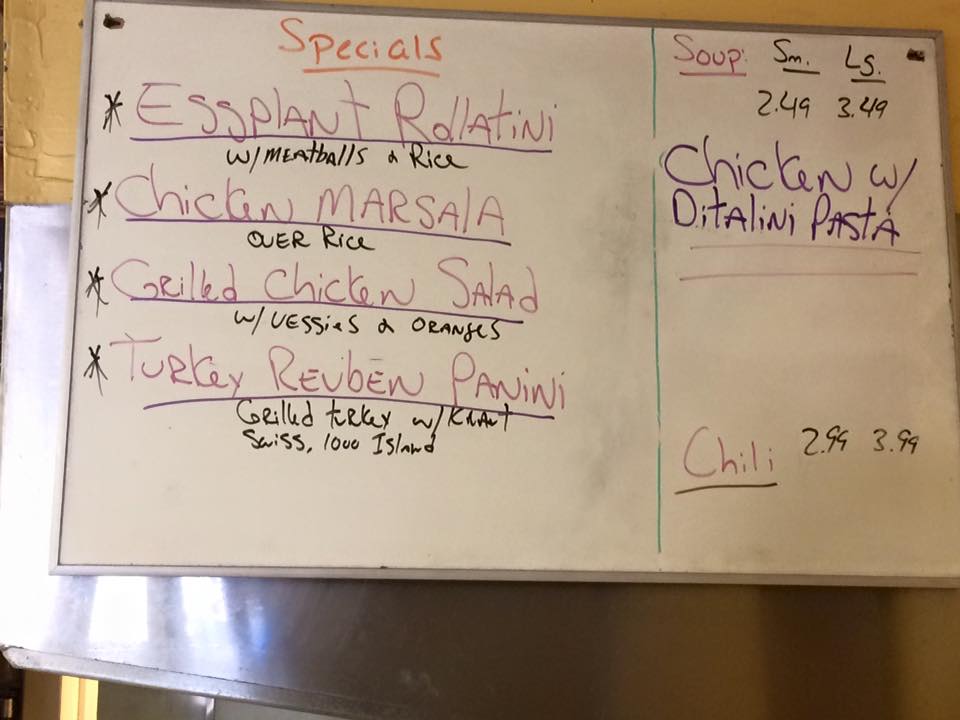 Specials
* Eggplant Rollatini
w/ Meatballs & Rice
* Chicken Marsala
over Rice
* Grilled Chicken Salad
w/ Veggies & Oranges
* Turkey Reuben Panini
Grilled turkey w/ Kraut
Swiss, 1000 Island
Soup: Sm. Lg.
2.49 3.49
Chicken w/
Ditalini Pasta
Chili 2.99 3.99